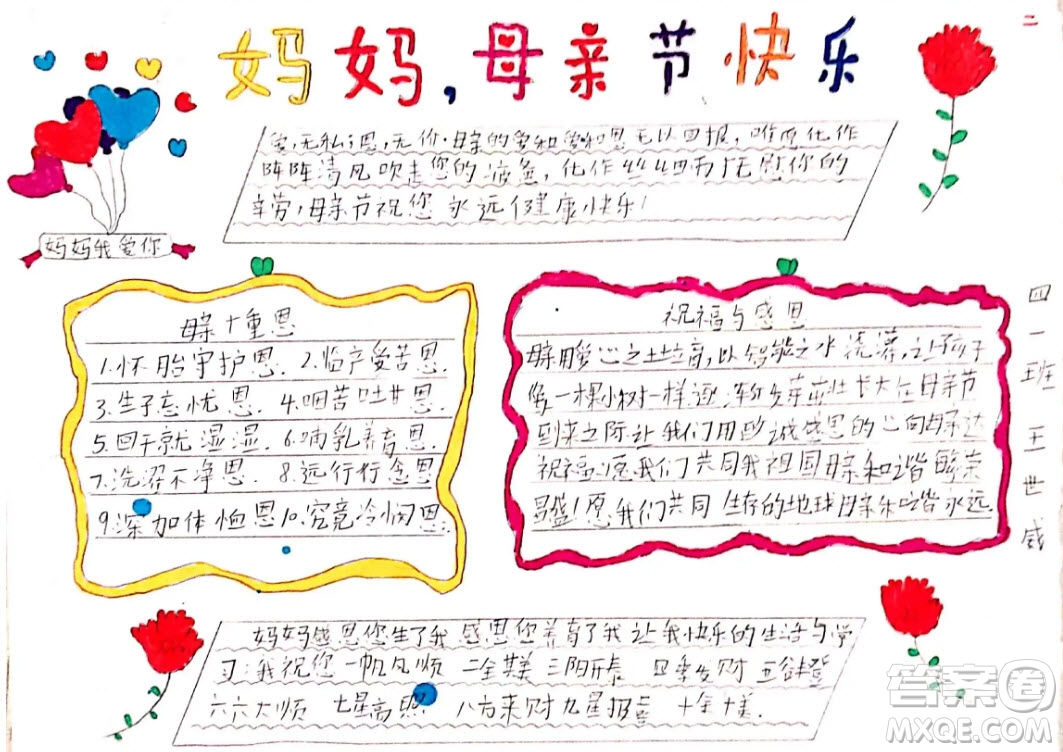 妈妈,母亲节快乐
二
爱,无私;恩,无价.母亲的爱和爱和恩无以回报,唯愿化作
阵阵清风吹走您的疲惫,化作丝丝细雨抚慰你的
辛劳,母亲节祝您 永远健康快乐!
妈妈我爱你
母亲十重恩
1.怀胎守护恩. 2.临产受苦恩.
3.生子忘忧恩. 4.咽苦吐甘恩.
5.回干就湿湿. 6.哺乳养育恩.
7.洗濯不净恩. 8.远行忆念恩
9.深加体恤恩10.究竟怜悯恩.
祝福与感恩
母亲用爱心之土培育,以智能之水浇灌,让孩子
像一棵小树一样逐渐发芽茁壮长大在母亲节
到来之际让我们用真诚感恩的心向母亲送
祝福,愿我们共同我祖国母亲和谐繁荣
昌盛!愿我们共同 生存的地球母亲和谐永远
四一班 王世威
妈妈感恩您生了我 感恩您养育了我 让我快乐的生活与学
习:我祝您 一帆风顺 二全其美 三阳开泰 四季发财 五谷丰登
六六大顺 七星高照 八方来财 九星报喜 十全十美.
答案圈
MXQE.COM